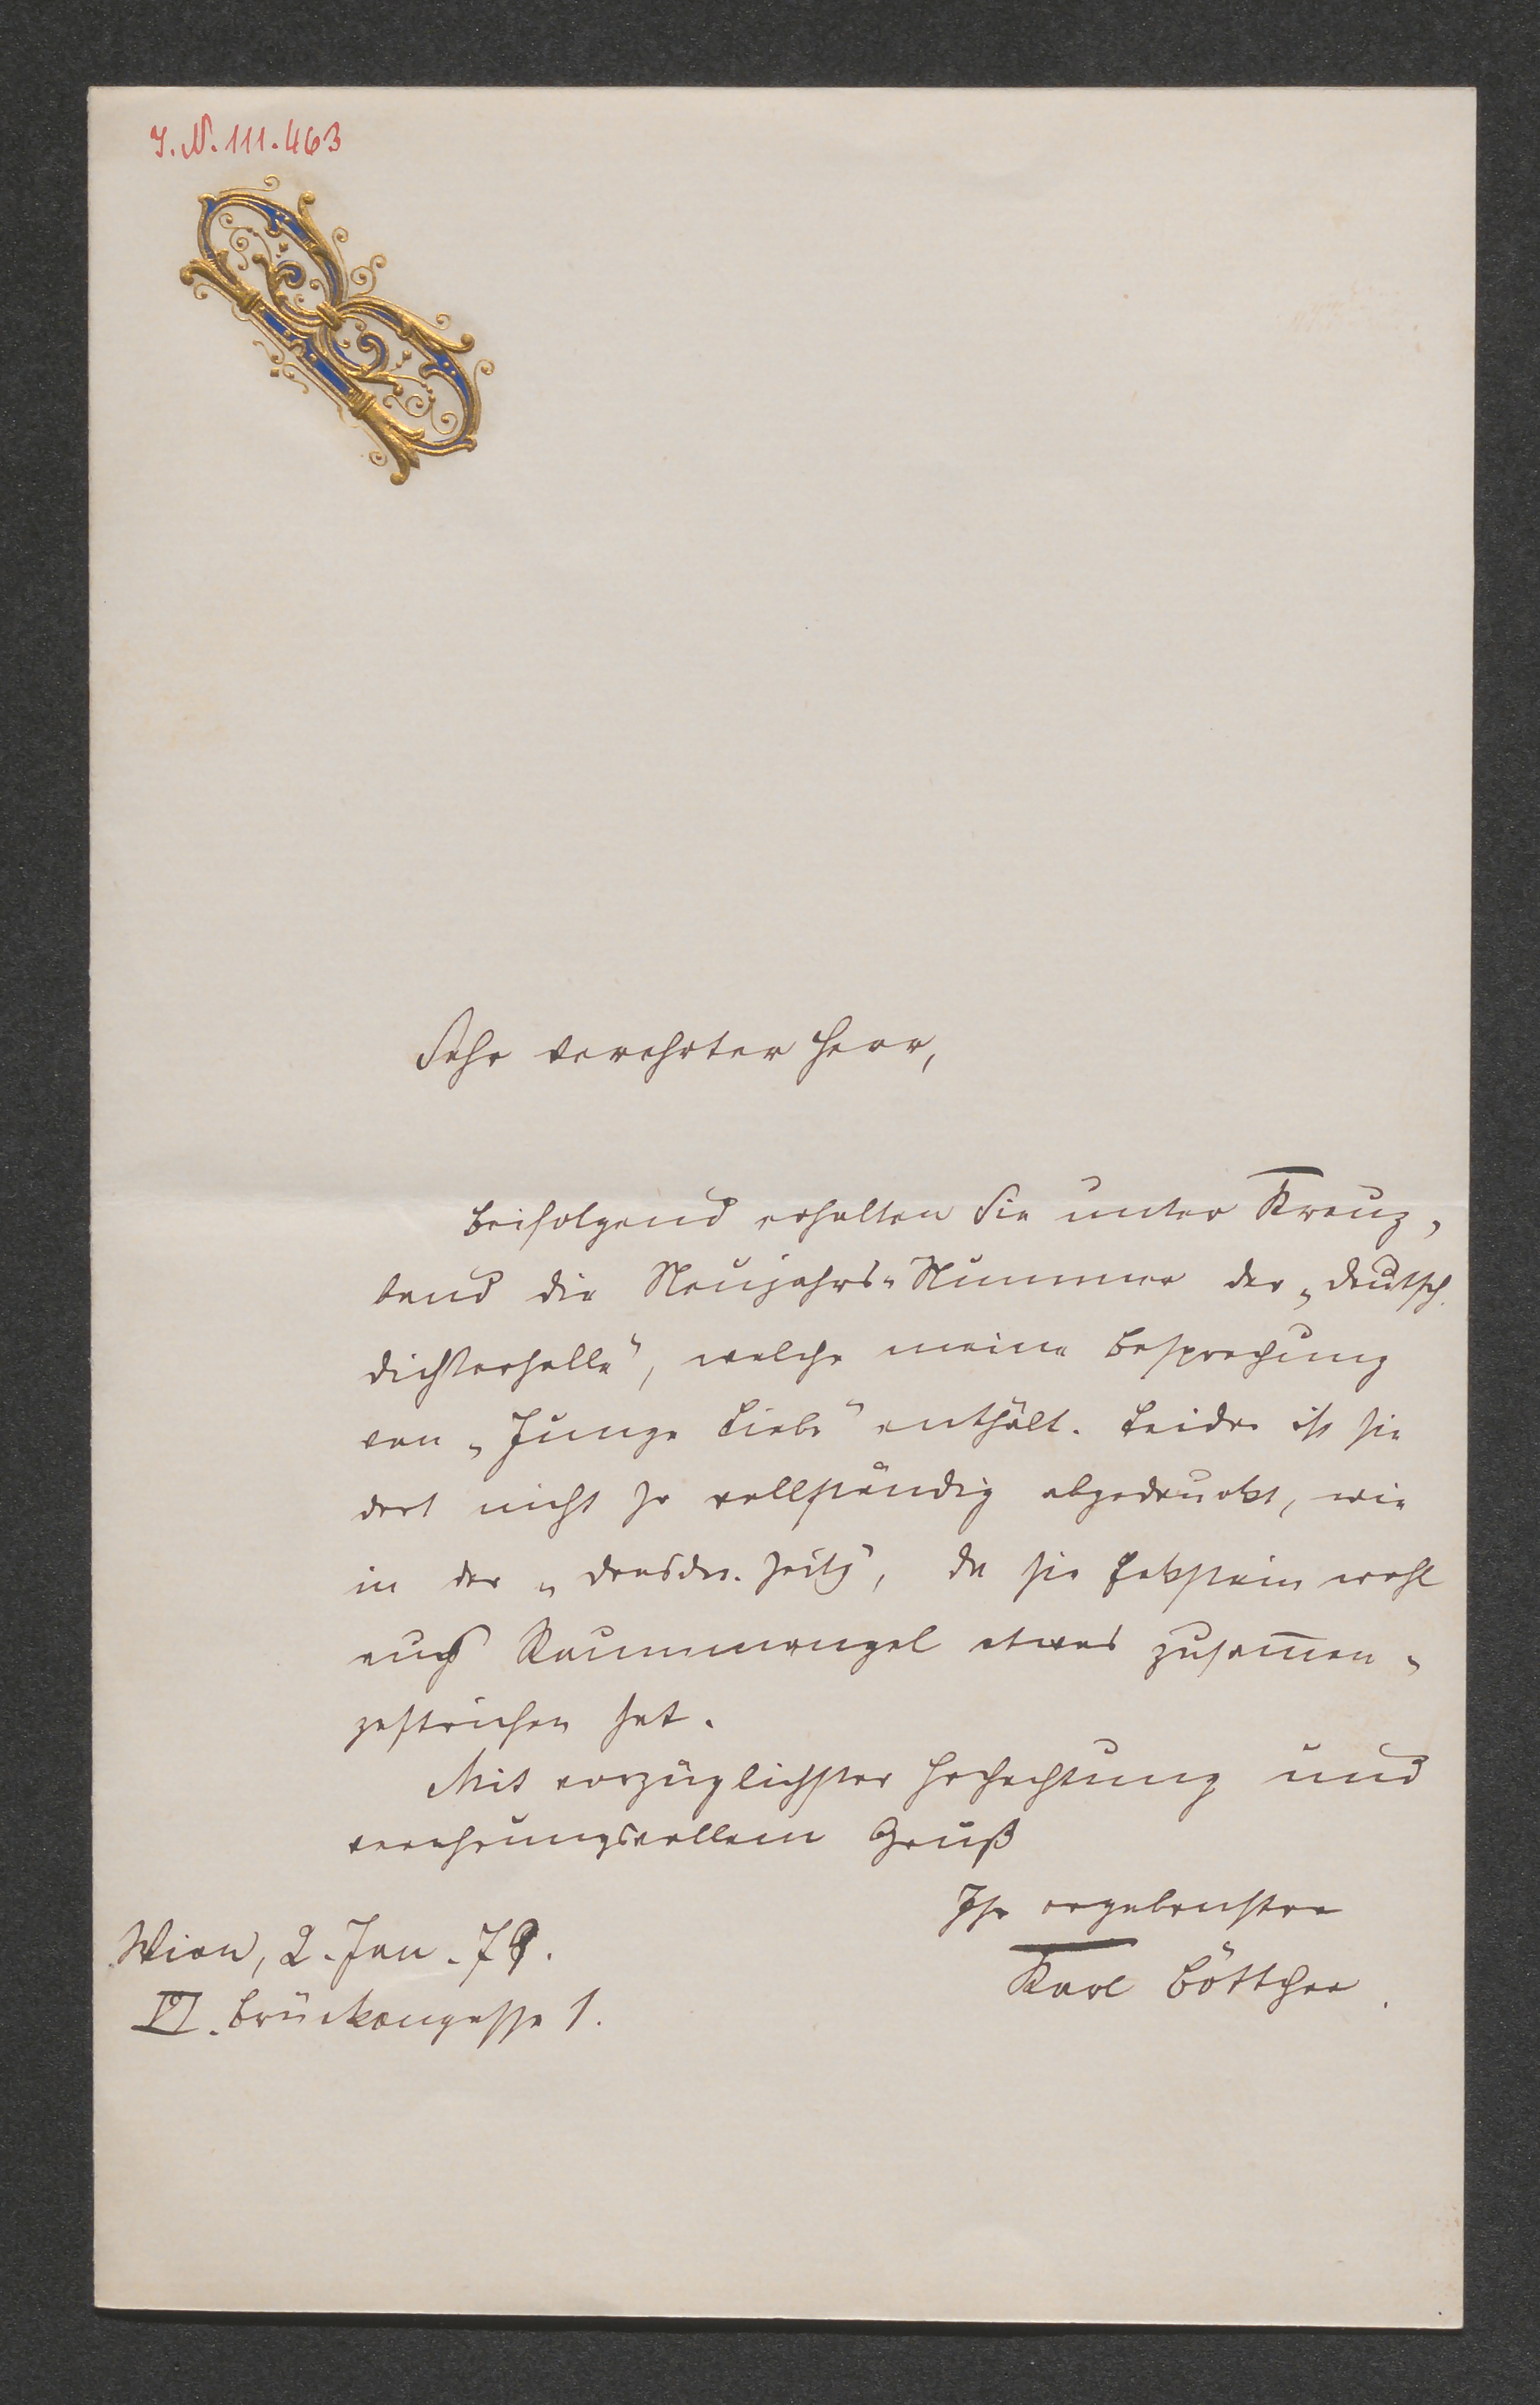 I.N. 111.463
B
Sehr verehrter Herr,
Beifolgend erhalten Sie unter Kreuz-
band die Neujahrs-Nummer der „Deutsch.
Dichterhalle", welche meine Besprechung
von „Junge Liebe" enthält. Leider ist sie
dort nicht so vollständig abgedruckt, wie
in der „Dresdn. Zeitg", da sie Eckstein wohl
aus Raummangel etwas zusam̅en-
gestrichen hat.
Mit vorzüglichster Hochachtung und
verehrungsvollem Gruß
Ihr ergebenster
Karl Böttcher.
Wien, 2. Jan. 79.
VI. Brückengasse 1.